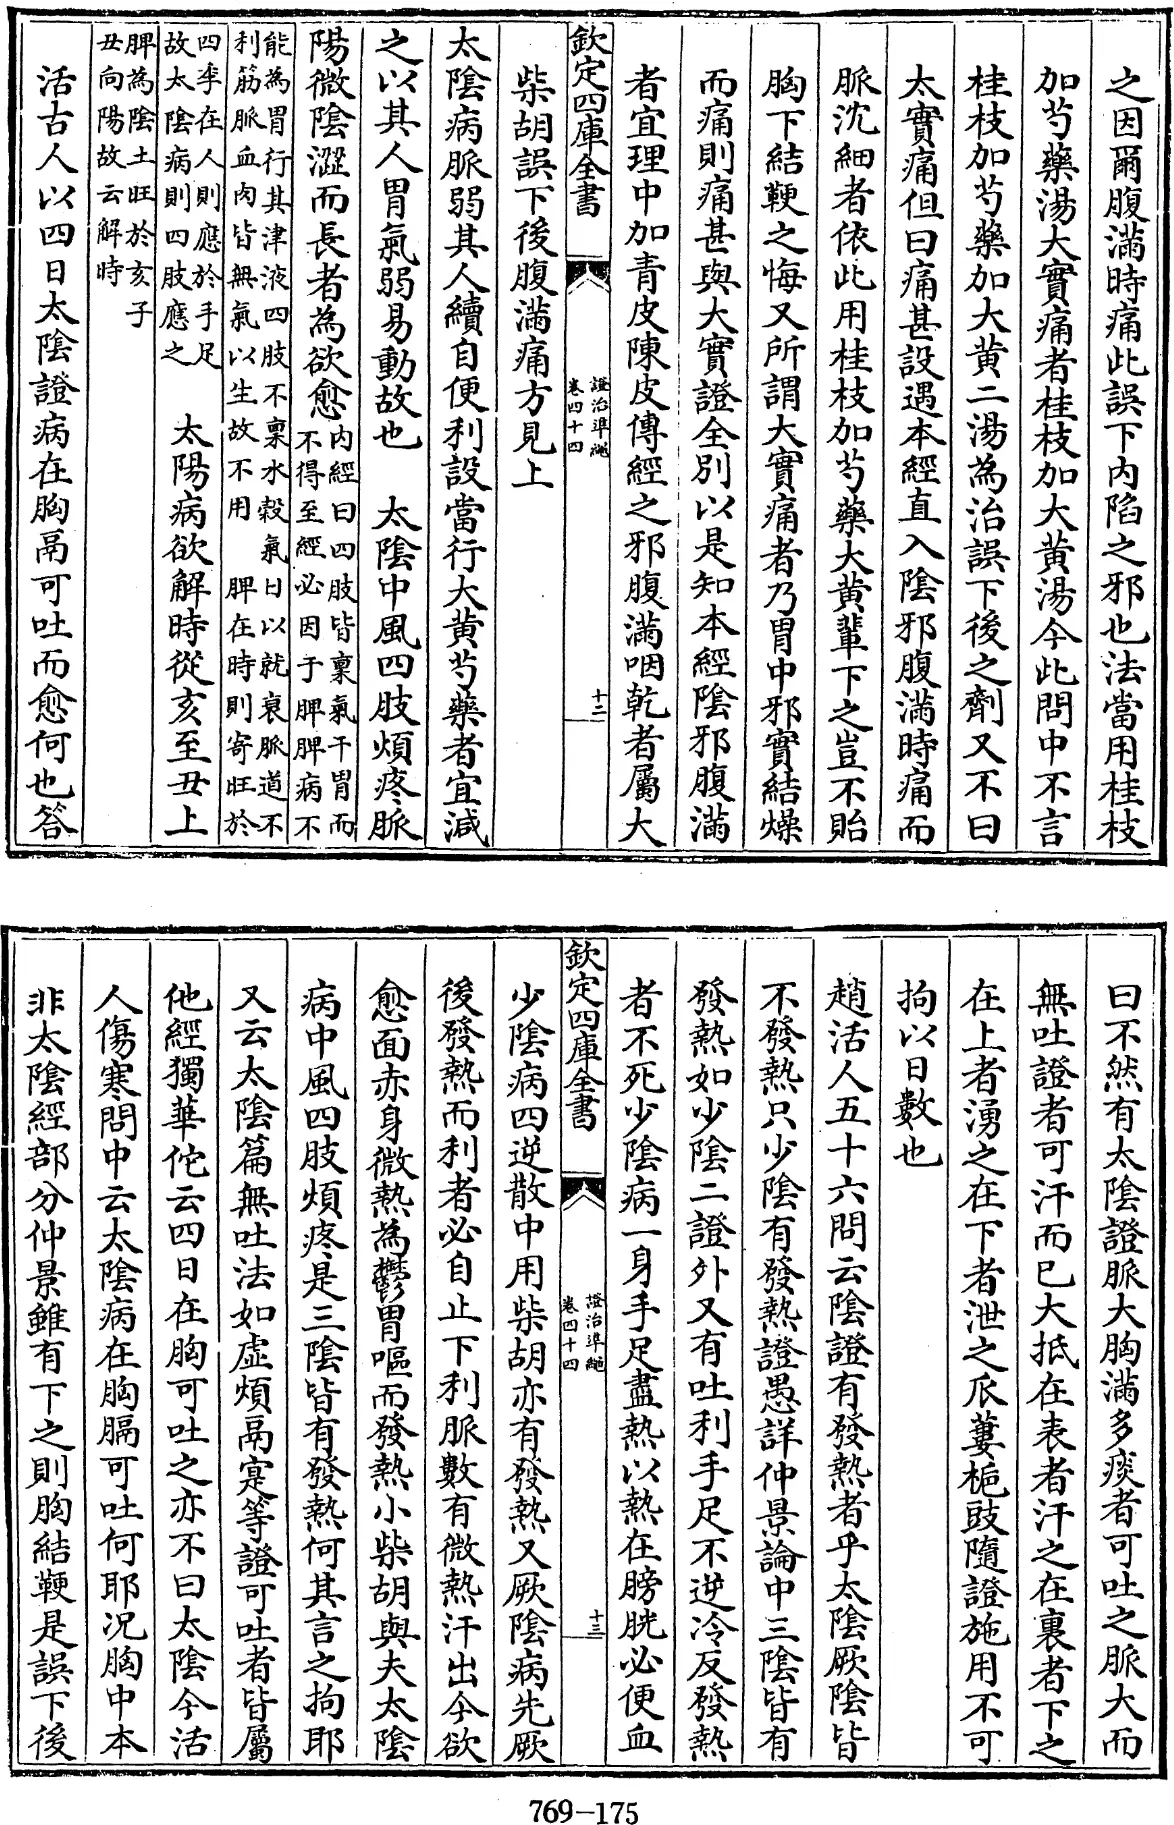 之因爾腹滿時痛此誤下内陷之邪也法當用桂枝
加芍藥湯大實痛者桂枝加大黄湯今此問中不言
桂枝加芍藥加大黄二湯為治誤下後之劑又不曰
太實痛但曰痛甚設遇本經直入陰邪腹滿時痛而
脈沈細者依此用桂枝加芍藥大黄輩下之豈不貽
胸下結鞕之悔又所謂大實痛者乃胃中邪實結燥
而痛則痛甚與大實證全別以是知本經陰邪腹滿
者宜理中加青皮陳皮傳經之邪腹滿咽乾者屬大
欽定四庫全書
證治準繩
卷四十四
十二
柴胡誤下後腹滿痛方見上
太陰病脈弱其人續自便利設當行大黄芍藥者宜減
之以其人胃氣弱易動故也 太陰中風四肢煩疼脈
陽微陰澀而長者為欲愈内經曰四肢皆稟氣干胃而
不得至經必因于脾脾病不
能為胃行其津液四肢不稟水穀氣日以就衰脈道不
利筋脈血肉皆無氣以生故不用 脾在時則寄旺於
四季在人則應於手足
故太陰病則四肢應之 太陽病欲解時從亥至丑上
脾為陰土旺於亥子
丑向陽故云解時
活古人以四日太陰證病在胸鬲可吐而愈何也答
曰不然有太陰證脈大胸滿多痰者可吐之脈大而
無吐證者可汗而已大抵在表者汗之在裏者下之
在上者湧之在下者泄之瓜蔞梔豉隨證施用不可
拘以日數也
趙活人五十六問云陰證有發熱者乎太陰厥陰皆
不發熱只少陰有發熱證愚詳仲景論中三陰皆有
發熱如少陰二證外又有吐利手足不逆冷反發熱
者不死少陰病一身手足盡熱以熱在膀胱必便血
欽定四庫全書
證治準繩
卷四十四
十三
少陰病四逆散中用柴胡亦有發熱又厥陰病先厥
後發熱而利者必自止下利脈數有微熱汗出今欲
愈面赤身微熱為鬱胃嘔而發熱小柴胡與夫太陰
病中風四肢煩疼是三陰皆有發熱何其言之拘耶
又云太陰篇無吐法如虛煩鬲寔等證可吐者皆屬
他經獨華佗云四日在胸可吐之亦不曰太陰今活
人傷寒問中云太陰病在胸膈可吐何耶况胸中本
非太陰經部分仲景雖有下之則胸結鞕是誤下後
769-175